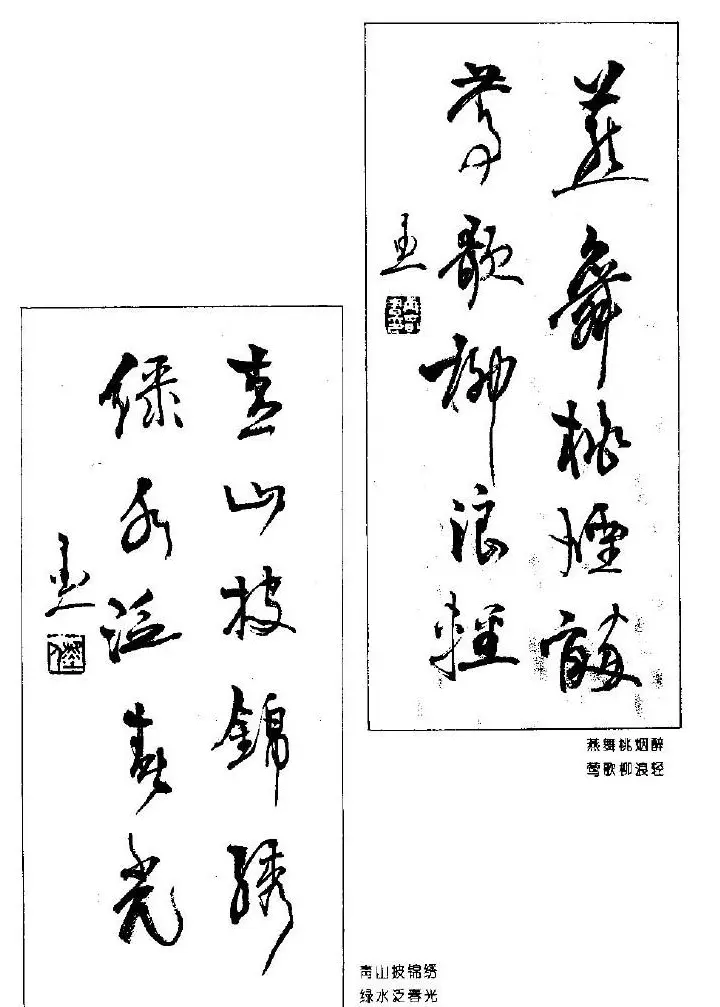 燕舞桃煙醉
莺歌柳浪輕
燕舞桃烟醉
莺歌柳浪轻
青山披錦绣
绿水泛春光
青山披锦绣
绿水泛春光